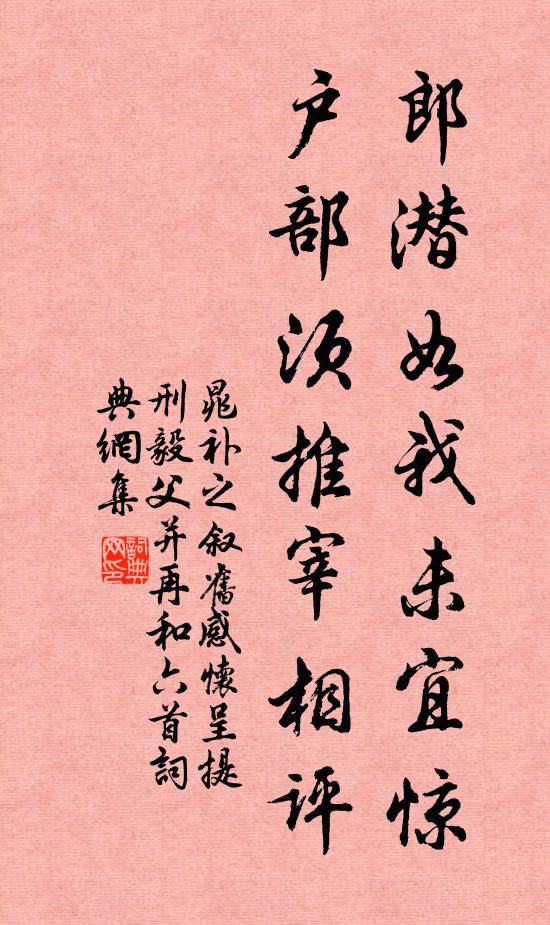 郎潜如我未宜惊
户部须推宰相评
晁补之叙旧感怀呈提
刑毅父并再和六首詞
典網集
詞典网印